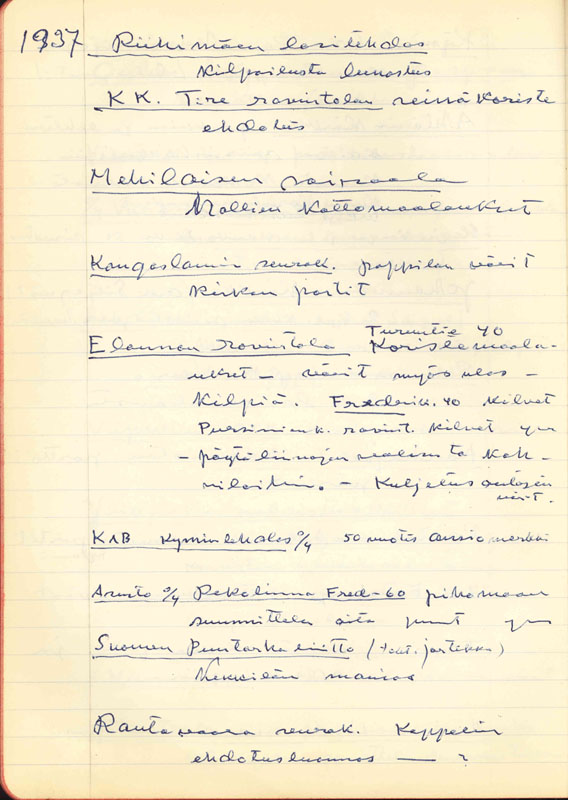 1937 Riihimäen lasitehdas
Kilpailusta lunastus
K.K. Tire ravintolan seinäkoriste
ehdotus
Mehiläisen sairaala
Mallien Kattomaalaukset
Kangaslammin seurak. pappilan värit
kirkon portit
Elannon ravintola Turuntie 40
Koristemaala-
ukset – värit myös ulos –
Kilpiä. Fredrik. 40 kilvet
Pursimienk. ravint. kilvet ym
– pöytäliinojen mallista kah-
viloihin. – Kuljetus autojen
värit.
KAB Kymintehdas o/y 50 vuotis ansiomerkki
Asunto o/y Pekolinna Fred-60 pihamaan
suunnittelu aita puut ym
Suomen Puutarhaliitto
Kekkilän mainos
Rautavaara seurak. Kappelin
ehdotusluonnos — ?